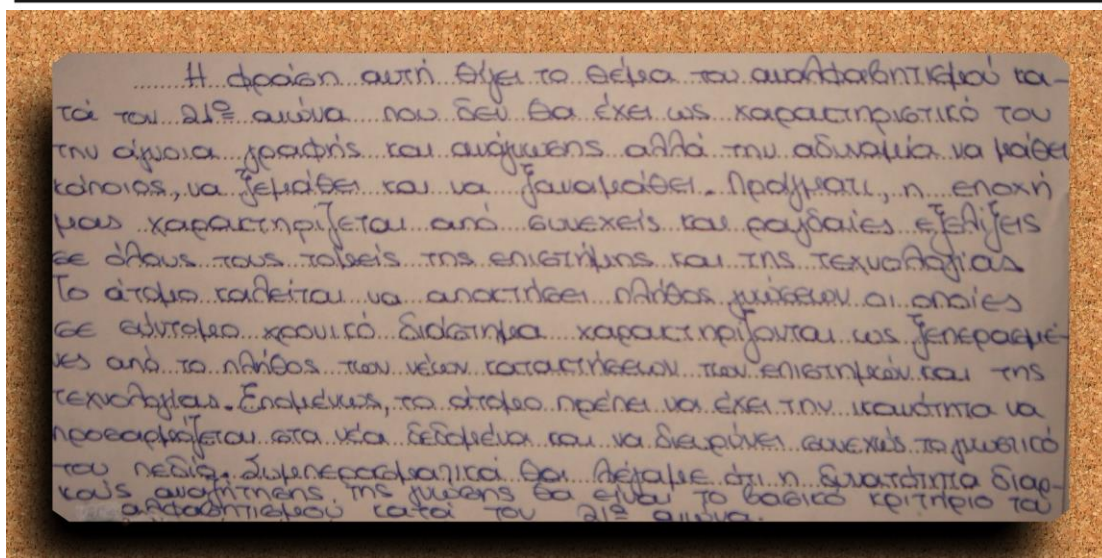 Η φράση αυτή θίγει το θέμα του αναλφαβητισμού κα-
τά τον 21º αιώνα που δεν θα έχει ως χαρακτηριστικό του
την άγνοια γραφής και ανάγνωσης αλλά την αδυναμία να μάθει
κάποιος, να ξεμάθει και να ξαναμάθει. Πράγματι, η εποχή
μας χαρακτηρίζεται από συνεχείς και ραγδαίες εξελίξεις
σε όλους τους τομείς της επιστήμης και της τεχνολογίας
Το άτομο καλείται να αποκτήσει πλήθος γνώσεων οι οποίες
σε σύντομο χρονικό διάστημα χαρακτηρίζονται ως ξεπερασμέ-
νες από το πλήθος των νέων κατακτήσεων των επιστημών και της
τεχνολογίας. Επομένως, το άτομο πρέπει να έχει την ικανότητα να
προσαρμόζεται στα νέα δεδομένα και να διευρύνει συνεχώς το γνωστικό
του πεδίο. Συμπερασματικά θα λέγαμε ότι η δυνατότητα διαρ-
κούς αναζήτησης της γνώσης θα είναι το βασικό κριτήριο του
αλφαβητισμού κατά τον 21º αιώνα.